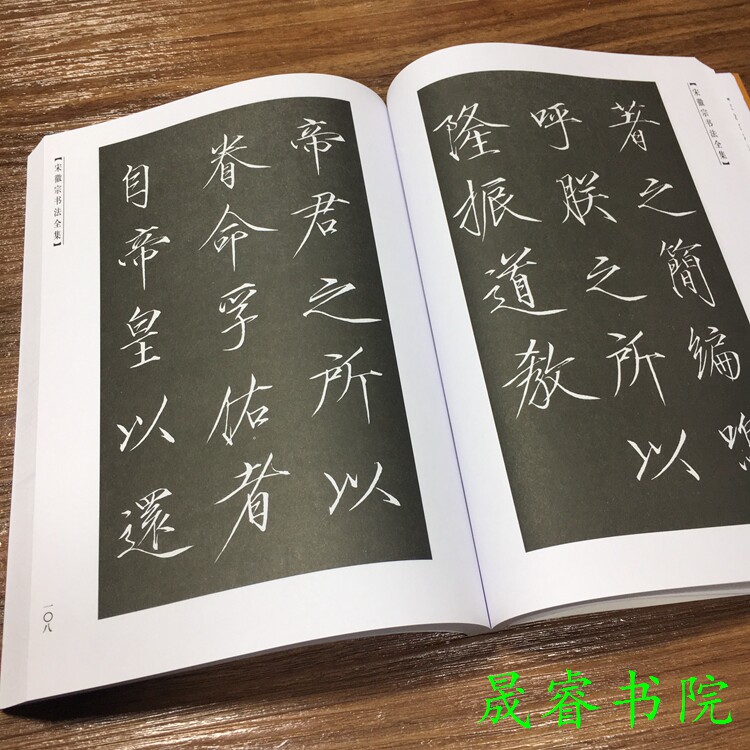 【宋徽宗书法全集】
著之簡編嗚
呼朕之所以
隆振道教
帝君之所以
眷命孚佑者
自帝皇以還
【宋徽宗书法全集】
一〇八
晟睿书院